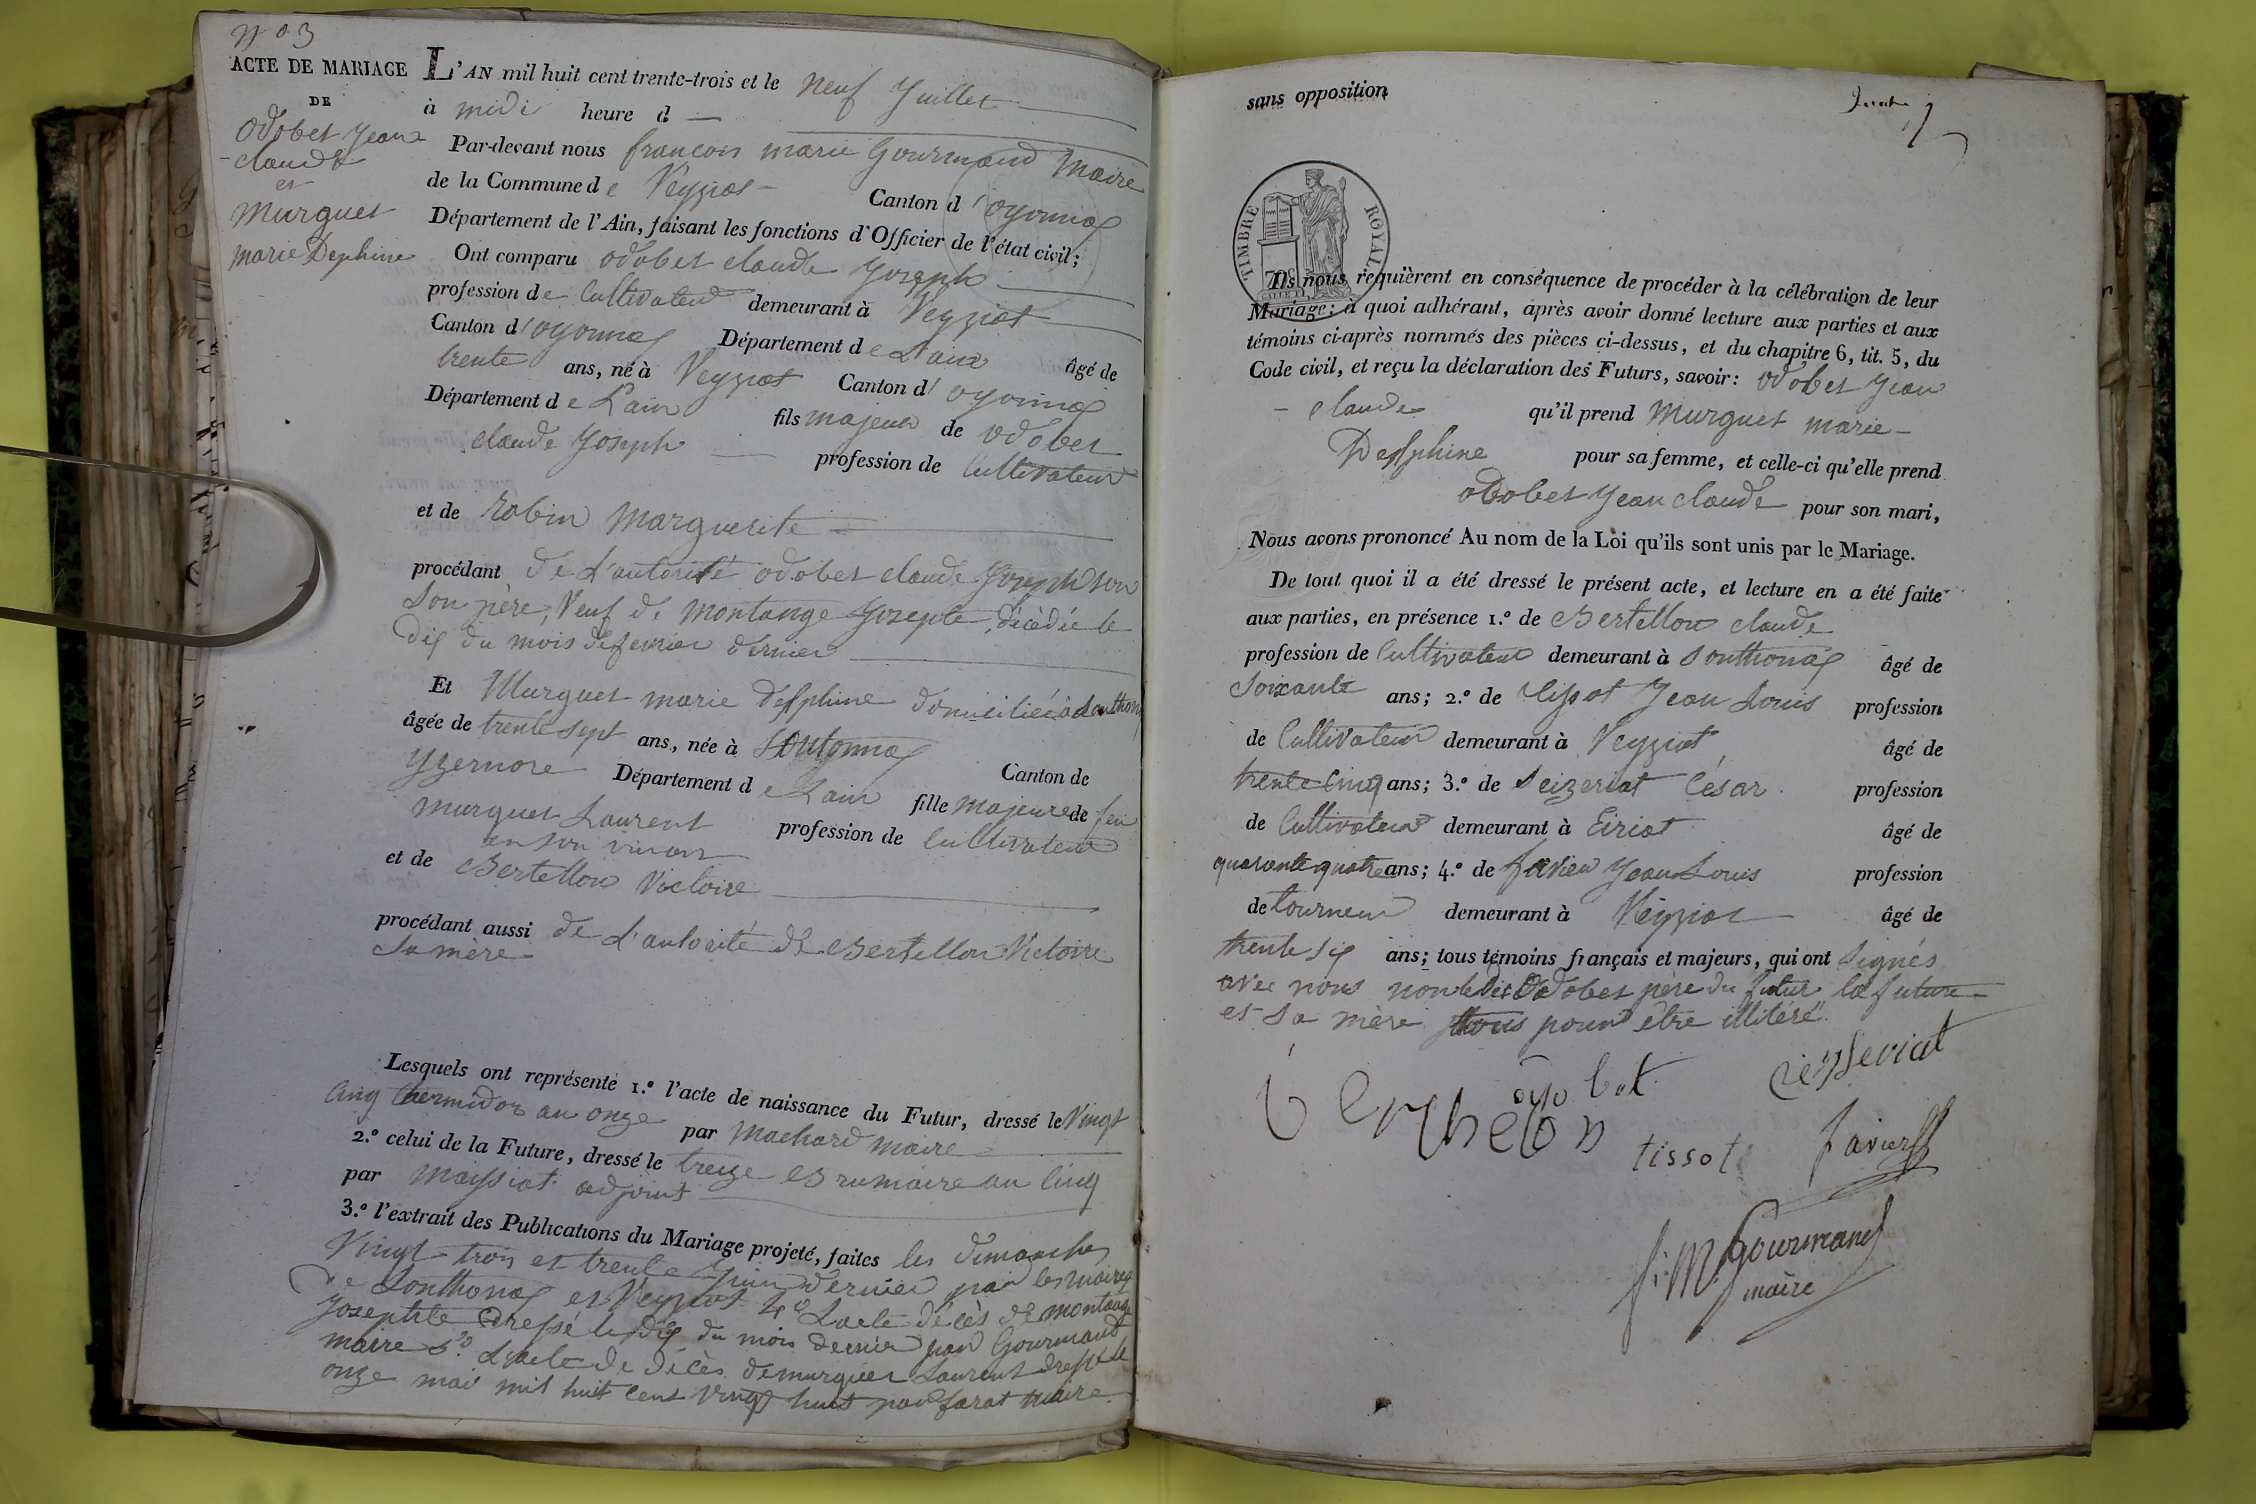 N° 3
ACTE DE MARIAGE
DE
odobet jean
claude
et
Murguet
marie Delphine
L'AN mil huit cent trente-trois et le neuf Juillet
à midi heure d
Par-devant nous francois marie Gourmand Maire
de la Commune de Veyziat Canton d'oyonnax
Département de l'Ain, faisant les fonctions d'Officier de l'état civil;
Ont comparu odobet claude Joseph
profession de Cultivateur demeurant à Veyziat
Canton d'oyonnax Département de L'ain âgé de
trente ans, né à Veyziat Canton d'oyonnax
Département de L'ain fils majeur de odobet
claude Joseph profession de Cultivateur
et de Robin Marguerite
procédant de L'autorité odobet claude Joseph son
son père, Veuf de Montange Josephte, décèdée le
dix du mois de fevrier dernier
Et Murguet marie delphine domiciliée à Sonthon
âgée de trente sept ans, née à Sontonnax Canton de
Yzernore Département de L'ain fille majeure de feu
murguet Laurent en son vivant profession de Cultivateur
et de Bertellon Victoire
procédant aussi de L'autorité de Bertellon Victoire
sa mère
Lesquels ont représenté 1.º l'acte de naissance du Futur, dressé le Vingt
Cinq thermidor an onze par Machard maire
2.º celui de la Future, dressé le treize Brumaire an Cinq
par Maissiat adjoint
3.º l'extrait des Publications du Mariage projeté, faites les dimanches
Vingt trois et trente Juin dernier par les maires
de Sonthonax et Veyziat 4º L'acte décès de montange
Josephte Dressé le dix du mois dernier par Gourmand
maire 5º L'acte de décès de murguet Laurent dressé le
onze mai mil huit cent vingt huit par farat maire
sans opposition
TIMBRE ROYAL
Ils nous requièrent en conséquence de procéder à la célébration de leur
Mariage: à quoi adhérant, après avoir donné lecture aux parties et aux
témoins ci-après nommés des pièces ci-dessus, et du chapitre 6, tit. 5, du
Code civil, et reçu la déclaration des Futurs, savoir: odobet jean
claude qu'il prend Murguet marie
Delphine pour sa femme, et celle-ci qu'elle prend
odobet jean claude pour son mari,
Nous avons prononcé Au nom de la Loi qu'ils sont unis par le Mariage.
De tout quoi il a été dressé le présent acte, et lecture en a été faite
aux parties, en présence 1.º de Bertellon claude
profession de Cultivateur demeurant à Sonthonax âgé de
Soixante ans; 2.º de Tissot Jean Louis profession
de Cultivateur demeurant à Veyziat âgé de
trente cinq ans; 3.º de Seizeriat César profession
de Cultivateur demeurant à Eiriat âgé de
quarante quatre ans; 4.º de favier Jean Louis profession
de tourneur demeurant à Veyziat âgé de
trente six ans; tous témoins français et majeurs, qui ont signés
avec nous non ledit odobet père du futur la future
et sa mère pour être illitéré
odobet
Tissot
favier
f: M. Gourmand
maire